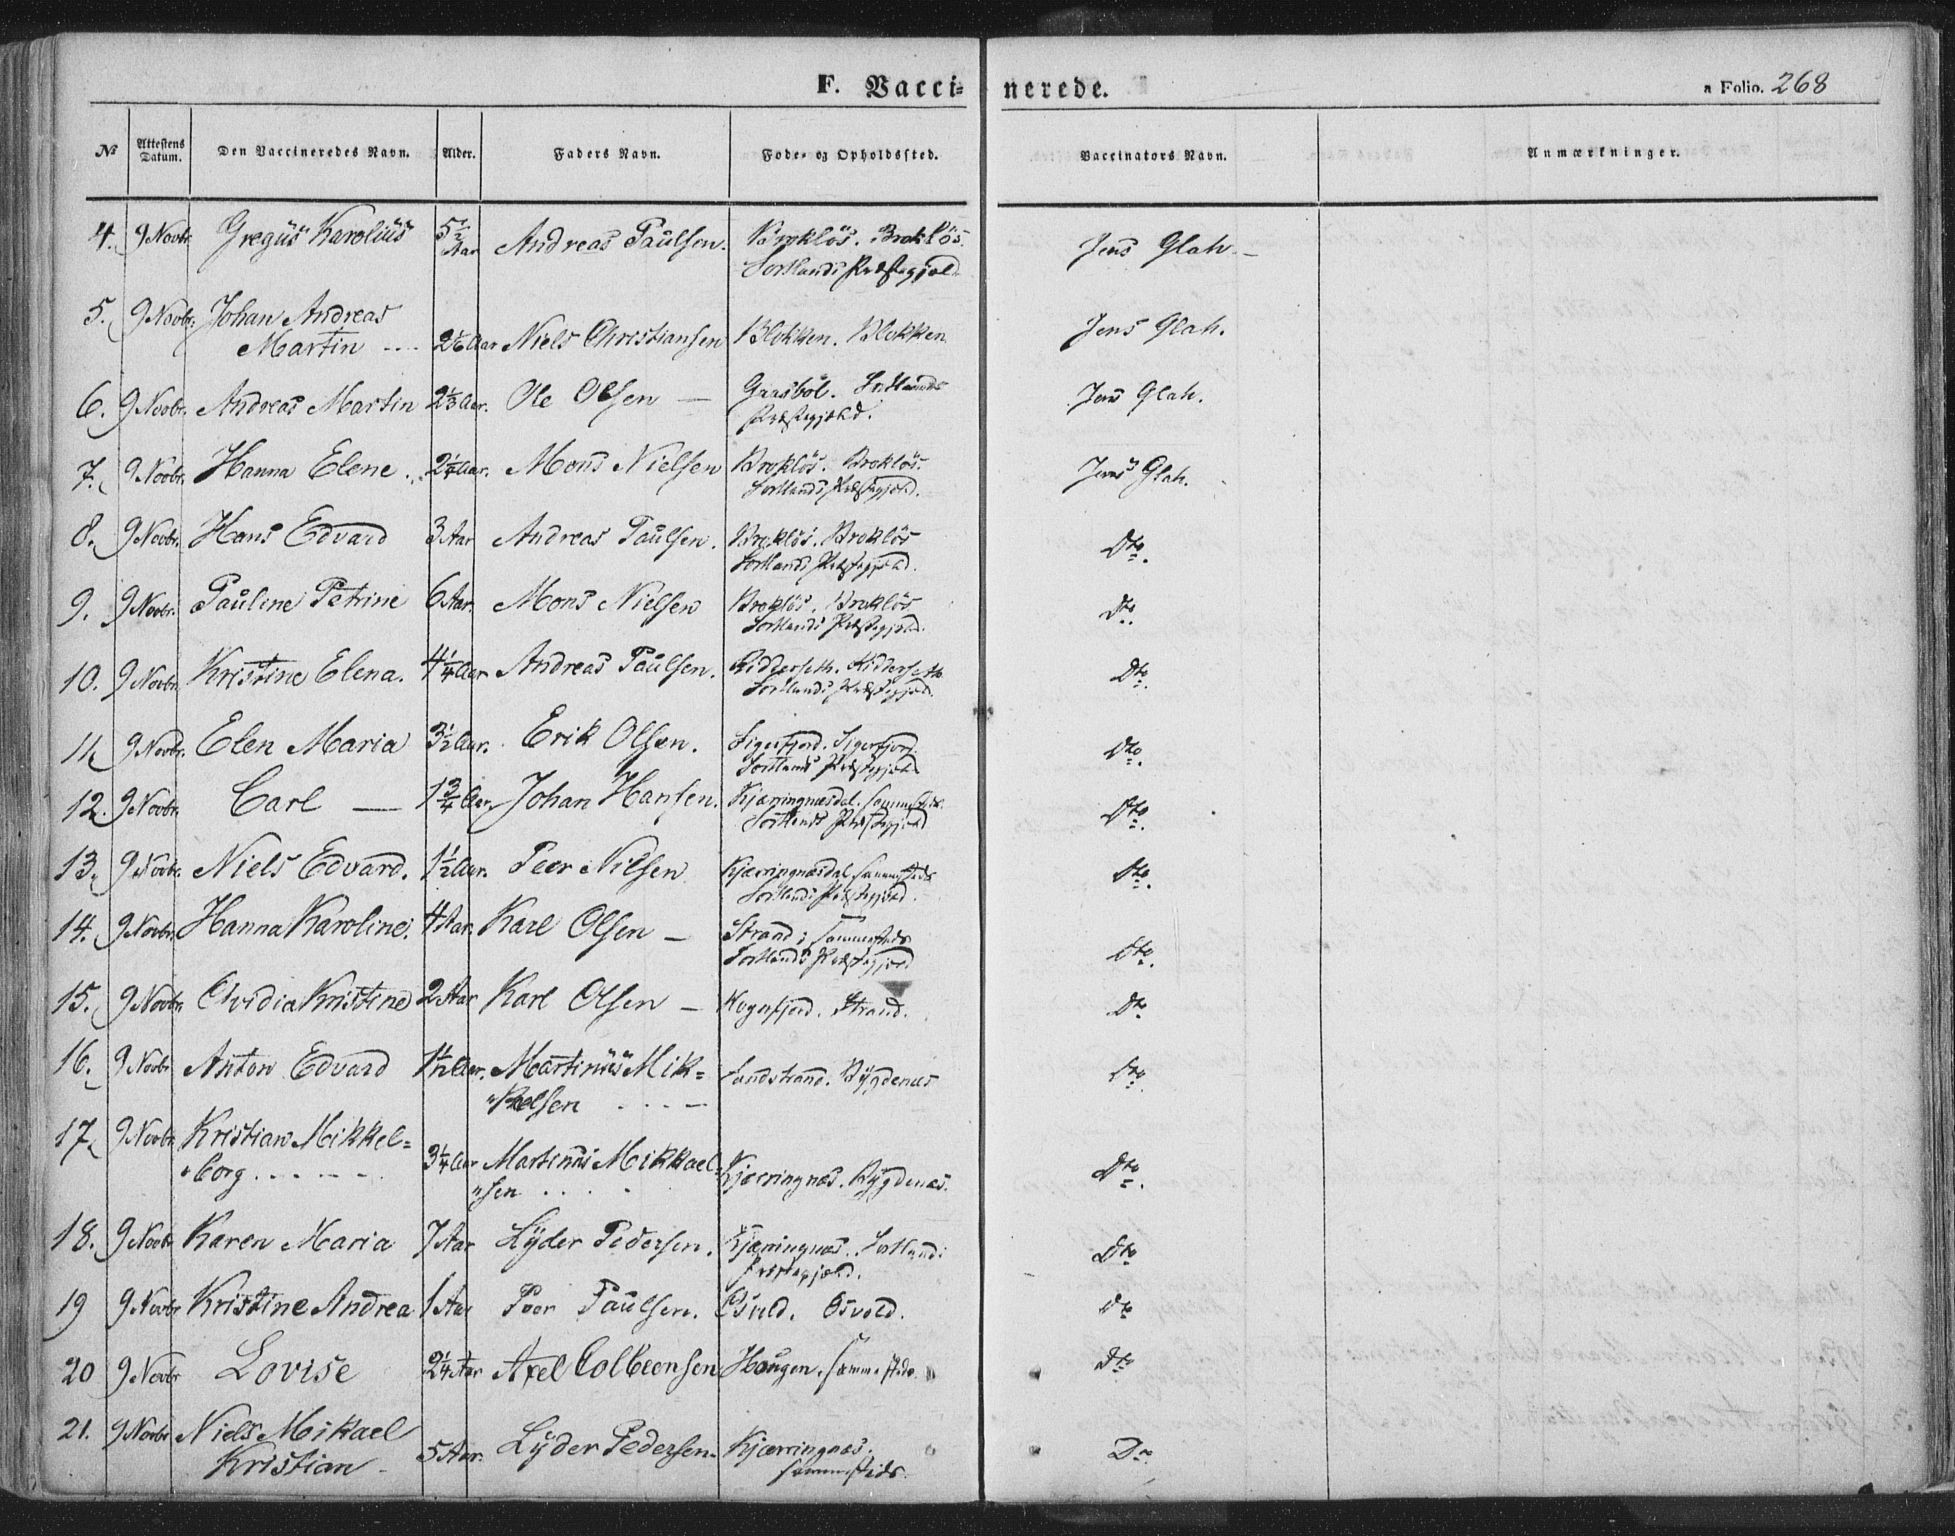 F. Vaccinerede.
a Folio. 268
№ Attestens Datum. Den Vaccineredes Navn. Alder. Faders Navn. Føde- og Opholdssted. Vaccinators Navn. Anmærkninger.
4. 9 Novbr. Gregüs Karolüs 5½ Aar Andreas Paülsen. Brokløs. Brokløs. Jens Glah.
Sortlands Præstegjeld
5. 9 Novbr. Johan Andreas
Martin 2⅙ Aar Niels Christiansen Blokken. Blokken Jens Glah.
6. 9 Novbr. Andreas Martin 2⅓ Aar. Ole Olsen — Gaasbøl. Sortlands Jens Glah.
Præstegjeld.
7. 9 Novbr. Hanna Elene 2¼ Aar. Mons Nielsen Brokløs. Brokløs. Jens Glah.
Sortlands Præstegjeld.
8. 9 Novbr. Hans Edvard 3 Aar Andreas Paülsen. Brokløs. Brokløs Dto.
Sortlands Præstegjeld.
9. 9 Novbr. Pauline Petrine 6 Aar. Mons Nielsen Brokløs. Brokløs Dto.
Sortlands Præstegjeld.
10. 9 Novbr. Kristine Elena. 4¼ Aar Andreas Paülsen. Dto.
Sortlands Præstegjeld.
11. 9 Novbr. Elen Maria 3½ Aar. Erik Olsen. Sigerfjord. Sigerfjord. Dto.
Sortlands Præstegjeld
12. 9 Novbr. Carl — 1¾ Aar Johan Hansen. Kjærringnæsdal. sammesteds. Dto.
Sortlands Præstegjeld
13. 9 Novbr. Niels Edvard. 1½ Aar. Peer Nilsen Kjærringnæsdal sammesteds Dto.
Sortlands Præstegjeld.
14. 9 Novbr. Hanna Karoline. 4 Aar. Karl Olsen — Strand; sammesteds Dto.
Sortlands Præstegjeld
15. 9 Novbr. Ovidia Kristine 2 Aar Karl Olsen — Hognfjord. Strand. Dto
16. 9 Novbr Anton Edvard Aar. Martinüs Mik= Sandstrand. Bÿgdenæs Dto.
"kelsen
17. 9 Novbr Kristian Mikkel=
"borg 3¼ Aar Martinüs Mikkael= Kjærringnæs. Bÿgdenæs. Dto.
"sen
18. 9 Novbr Karen Maria 7 Aar Lÿder Pedersen. Kjærringnæs. Sortlands Dto
Præstegjeld.
19 9 Novbr Kristine Andrea 1 Aar Peer Paülsen. Osvold. Dto
20 9 Novbr Lovise 2¼ Aar Axel Colbeensen Haugen. sammesteds. Dto
21. 9 Novbr Niels Mikael
Kristian 5 Aar. Lÿder Pedersen. Kjærringnæs. Do
sammesteds.